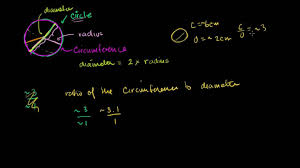 diameter
Circle
radius
Circumference
diameter = 2 × radius
c = 6cm
D = ~ 2cm
c/D = ~3
ratio of the Circumference to diameter
~3/~1 ~3.1/1